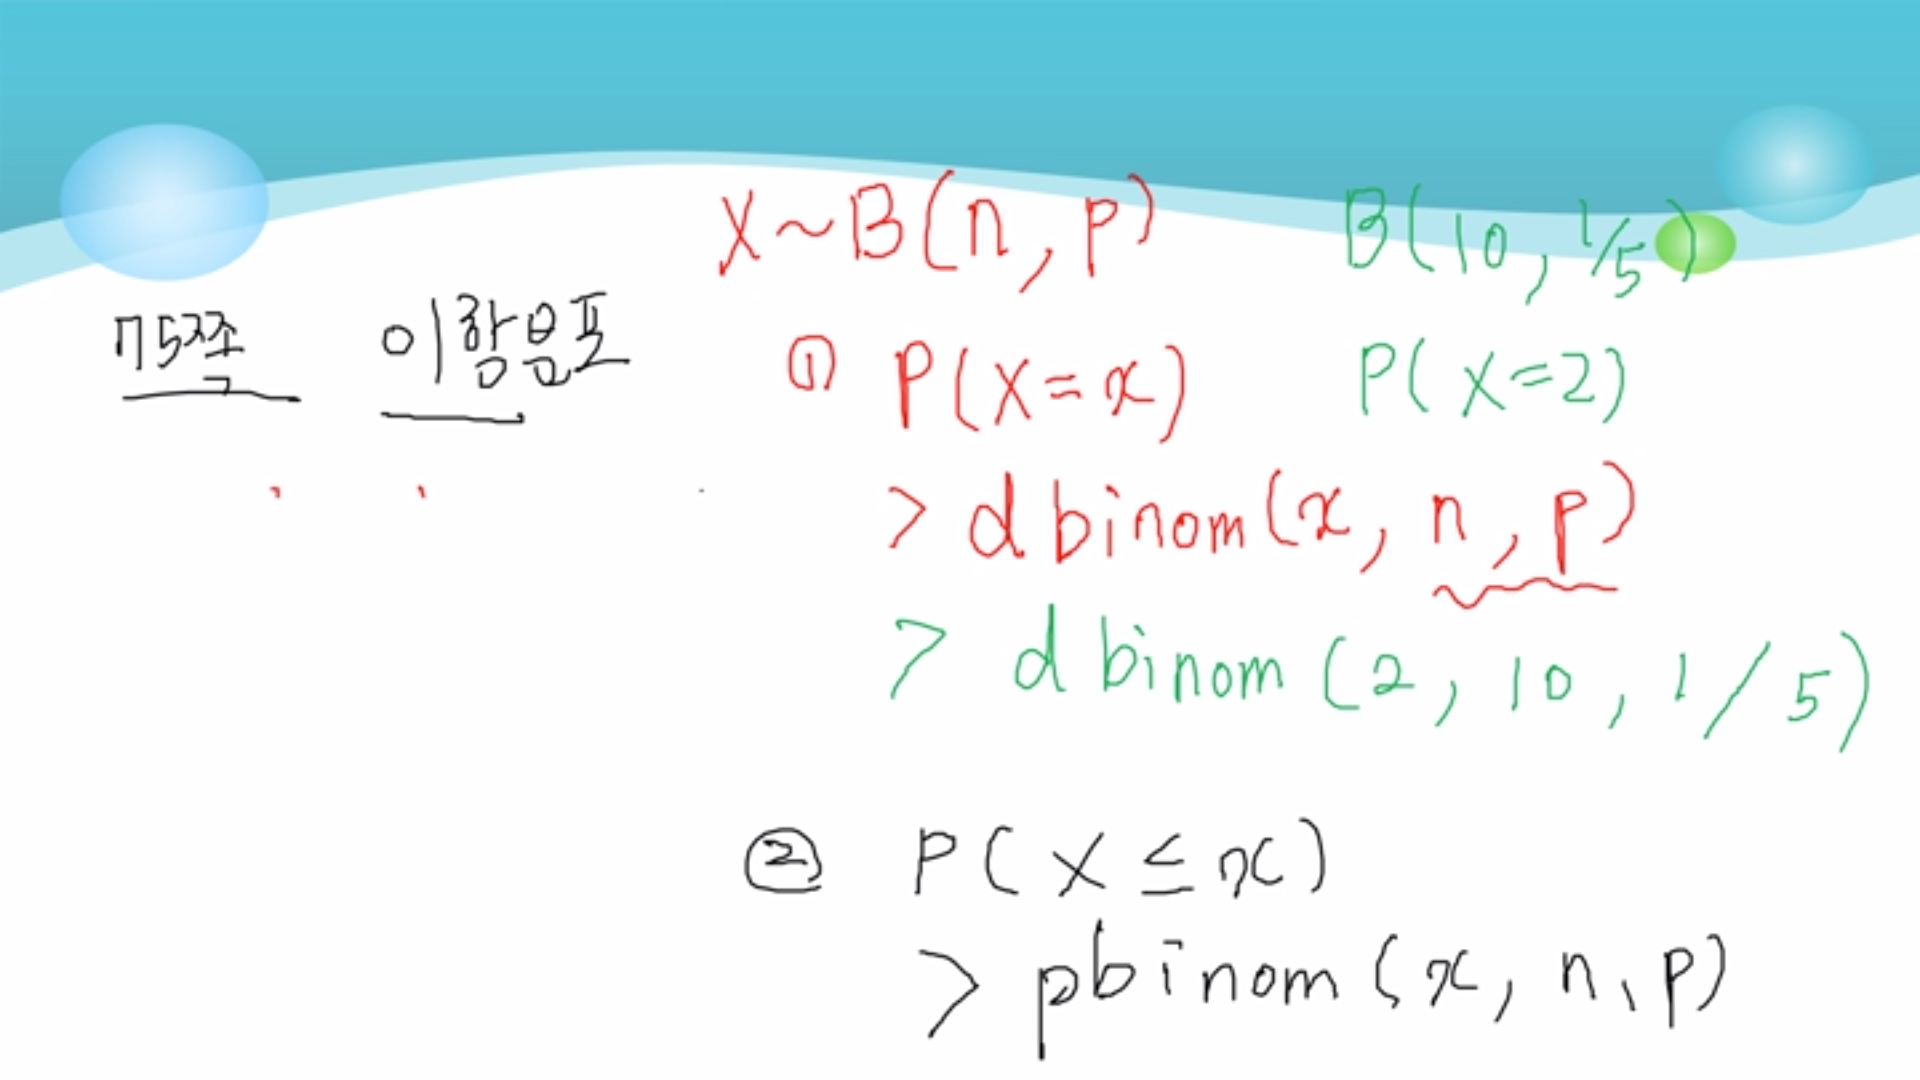 75쪽 이항분포
X~B(n, p) B(10, 1/5)
① P(X=x) P(X=2)
> dbinom(x, n, p)
> dbinom(2, 10, 1/5)
② P(X≤x)
> pbinom(x, n, p)